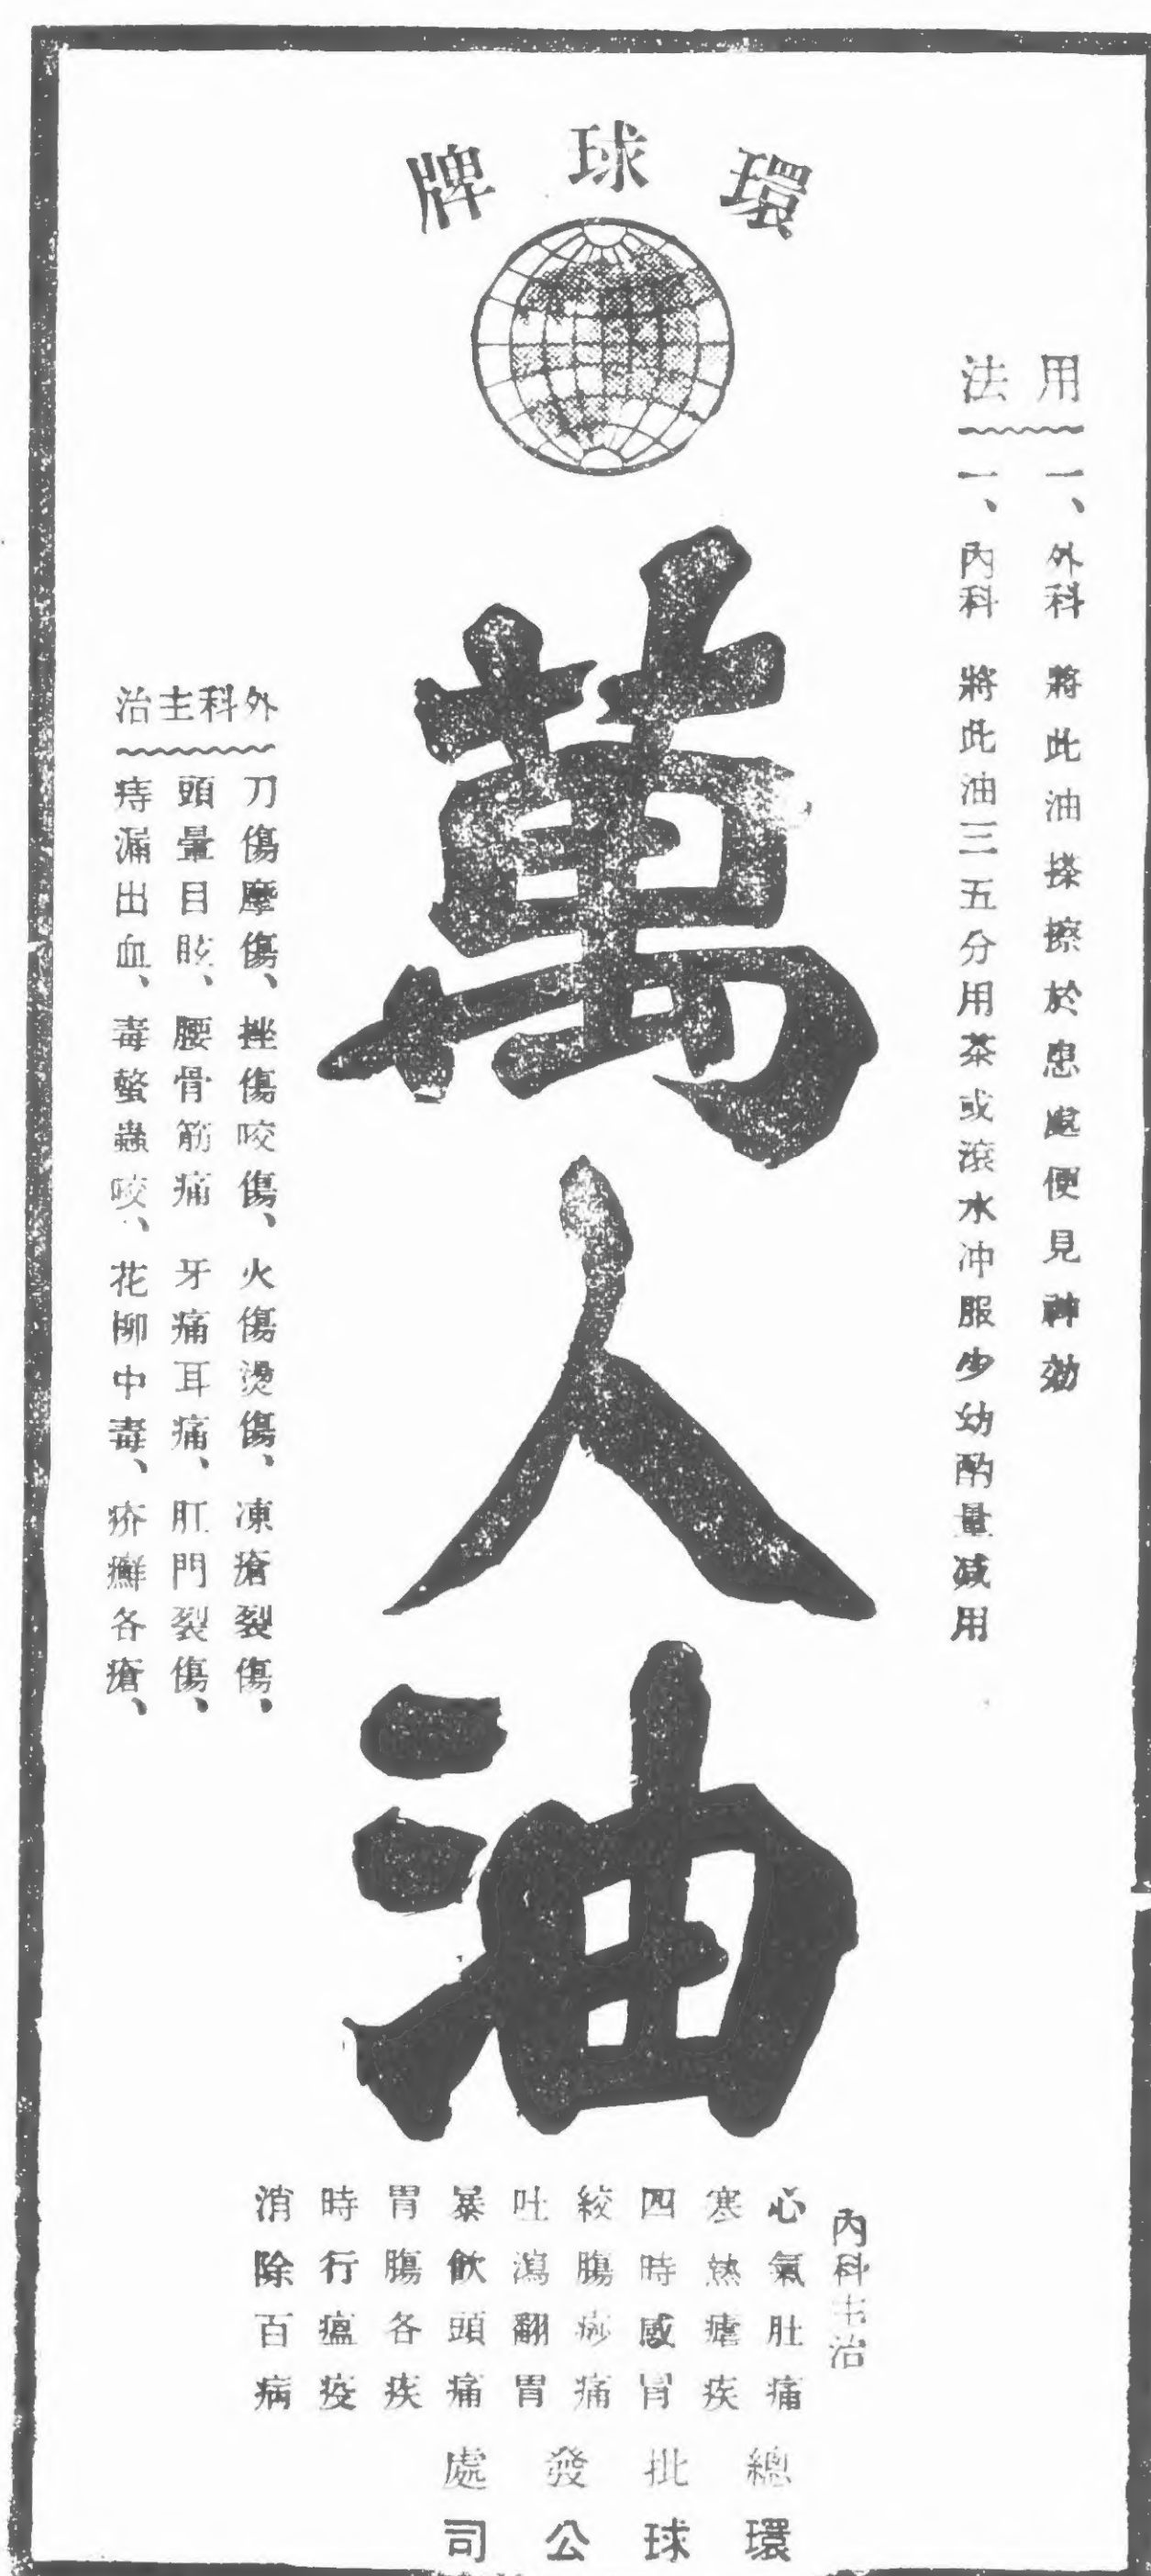 環球牌
萬人油
用法
一、外科 將此油搽擦於患處便見神効
一、內科 將此油三五分用茶或滾水冲服少幼酌量减用
外科主治
刀傷摩傷、挫傷咬傷、火傷燙傷、凍瘡裂傷、
頭暈目眩、腰骨筋痛 牙痛耳痛、肛門裂傷、
痔漏出血、毒螫蟲咬、花柳中毒、疥癬各瘡、
內科主治
心氣肚痛
寒熱瘧疾
四時感冒
絞腸痧痛
吐瀉翻胃
暴飲頭痛
胃腸各疾
時行瘟疫
消除百病
總批發處
環球公司